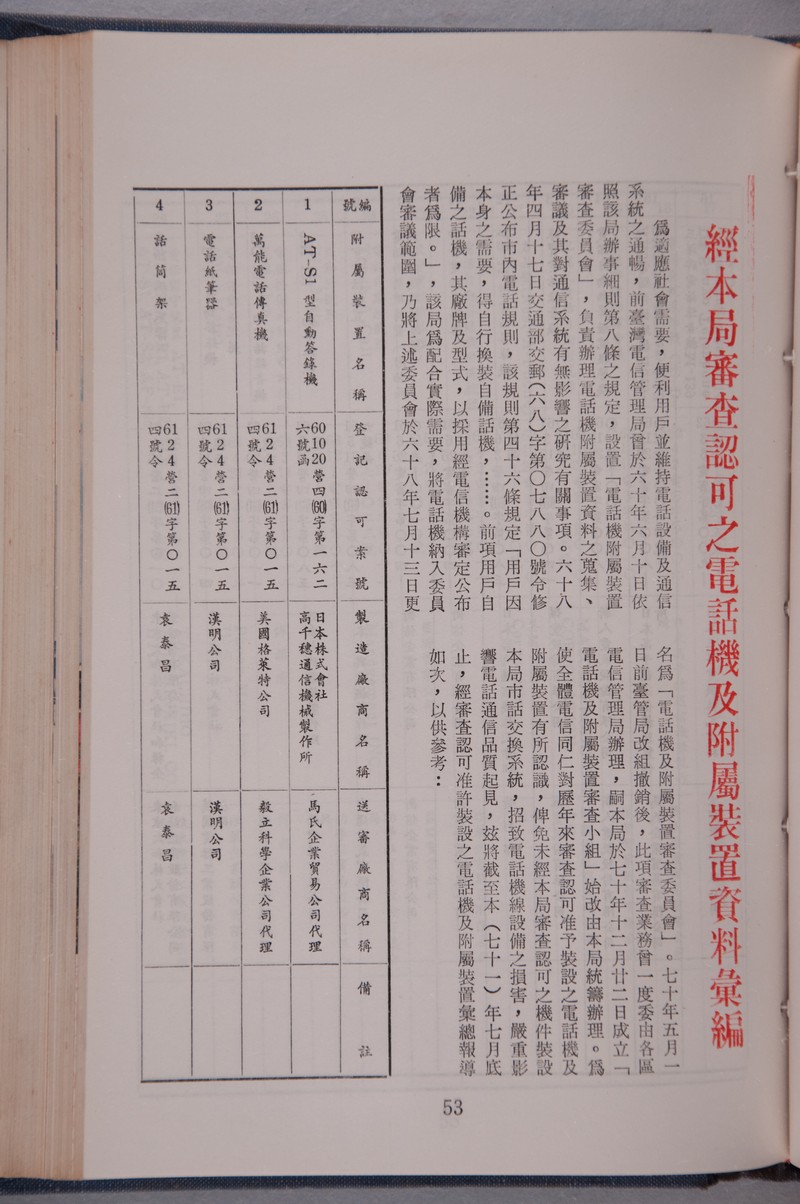 經本局審查認可之電話機及附屬裝置資料彙編
為適應社會需要，便利用戶並維持電話設備及通信
系統之通暢，前臺灣電信管理局曾於六十年六月十日依
照該局辦事細則第八條之規定，設置「電話機附屬裝置
審查委員會」，負責辦理電話機附屬裝置資料之蒐集、
審議及其對通信系統有無影響之研究有關事項。六十八
年四月十七日交通部交郵(六八)字第〇七八八〇號令修
正公布市內電話規則，該規則第四十六條規定「用戶因
本身之需要，得自行換裝自備話機，……。前項用戶自
備之話機，其廠牌及型式，以採用經電信機構審定公布
者為限。」，該局為配合實際需要，將電話機納入委員
會審議範圍，乃將上述委員會於六十八年七月十三日更
名為「電話機及附屬裝置審查委員會」。七十年五月一
日前臺管局改組撤銷後，此項審查業務曾一度委由各區
電信管理局辦理，嗣本局於七十年十二月廿二日成立「
電話機及附屬裝置審查小組」始改由本局統籌辦理。為
使全體電信同仁對歷年來審查認可准予裝設之電話機及
附屬裝置有所認識，俾免未經本局審查認可之機件裝設
本局市話交換系統，招致電話機線設備之損害，嚴重影
響電話通信品質起見，茲將截至本（七十一）年七月底
止，經審查認可准許裝設之電話機及附屬裝置彙總報導
如次，以供參考：
編號 附屬裝置名稱 登記認可案號 製造廠商名稱 送審廠商名稱 備註
1 AT-S1型自動答錄機 60 10 20 營四(60)字第一六二六號函 日本株式會社高千穗通信機械製作所 馬氏企業貿易公司代理
2 萬能電話傳真機 61 2 4 營二(61)字第〇一五四號令 美國格萊特公司 毅立科學企業公司代理
3 電話紙筆器 61 2 4 營二(61)字第〇一五四號令 漢明公司 漢明公司
4 話筒架 61 2 4 營二(61)字第〇一五四號令 袁泰昌 袁泰昌
53